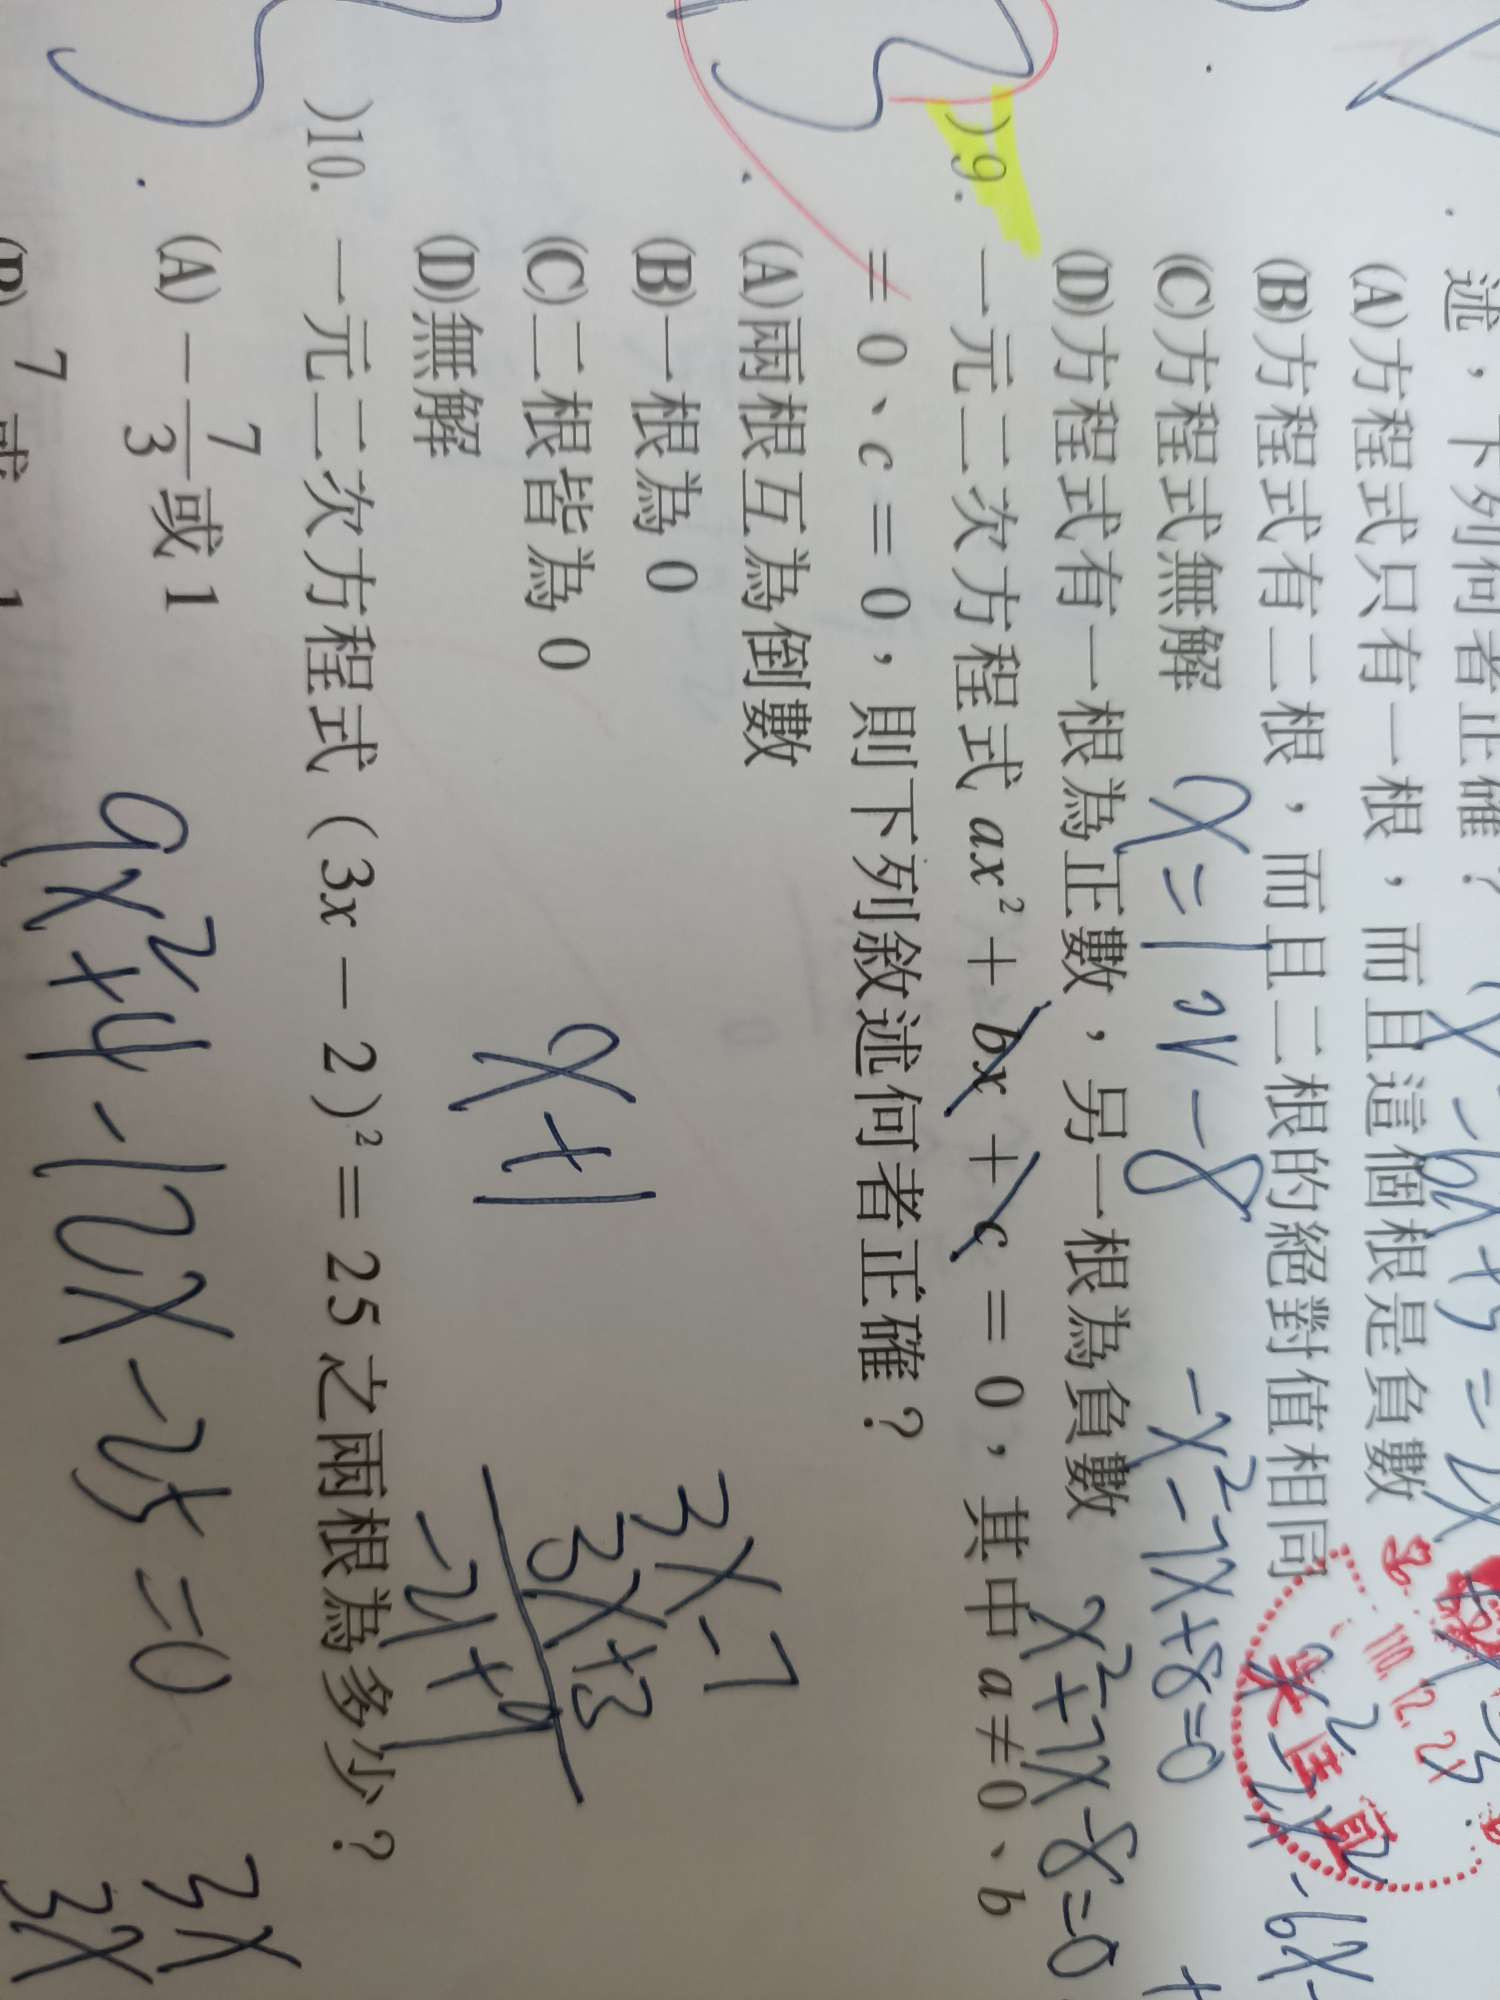 述,下列何者正確?
(A)方程式只有一根,而且這個根是負數
(B)方程式有二根,而且二根的絕對值相同
(C)方程式無解 x=1 or -8 -x²-7x+8=0
(D)方程式有一根為正數,另一根為負數 x²+7x-8=0
)9. 一元二次方程式 ax²+bx+c=0,其中 a≠0、b
=0、c=0,則下列敘述何者正確?
(A)兩根互為倒數
(B)一根為 0
(C)二根皆為 0
(D)無解
x+1
3x-7
3x+3
-21+9
)10. 一元二次方程式 (3x-2)²=25 之兩根為多少?
(A) -7/3 或 1
9x²+4-12x-25=0
3x
3x
(B) 7 或 1
110.12.2